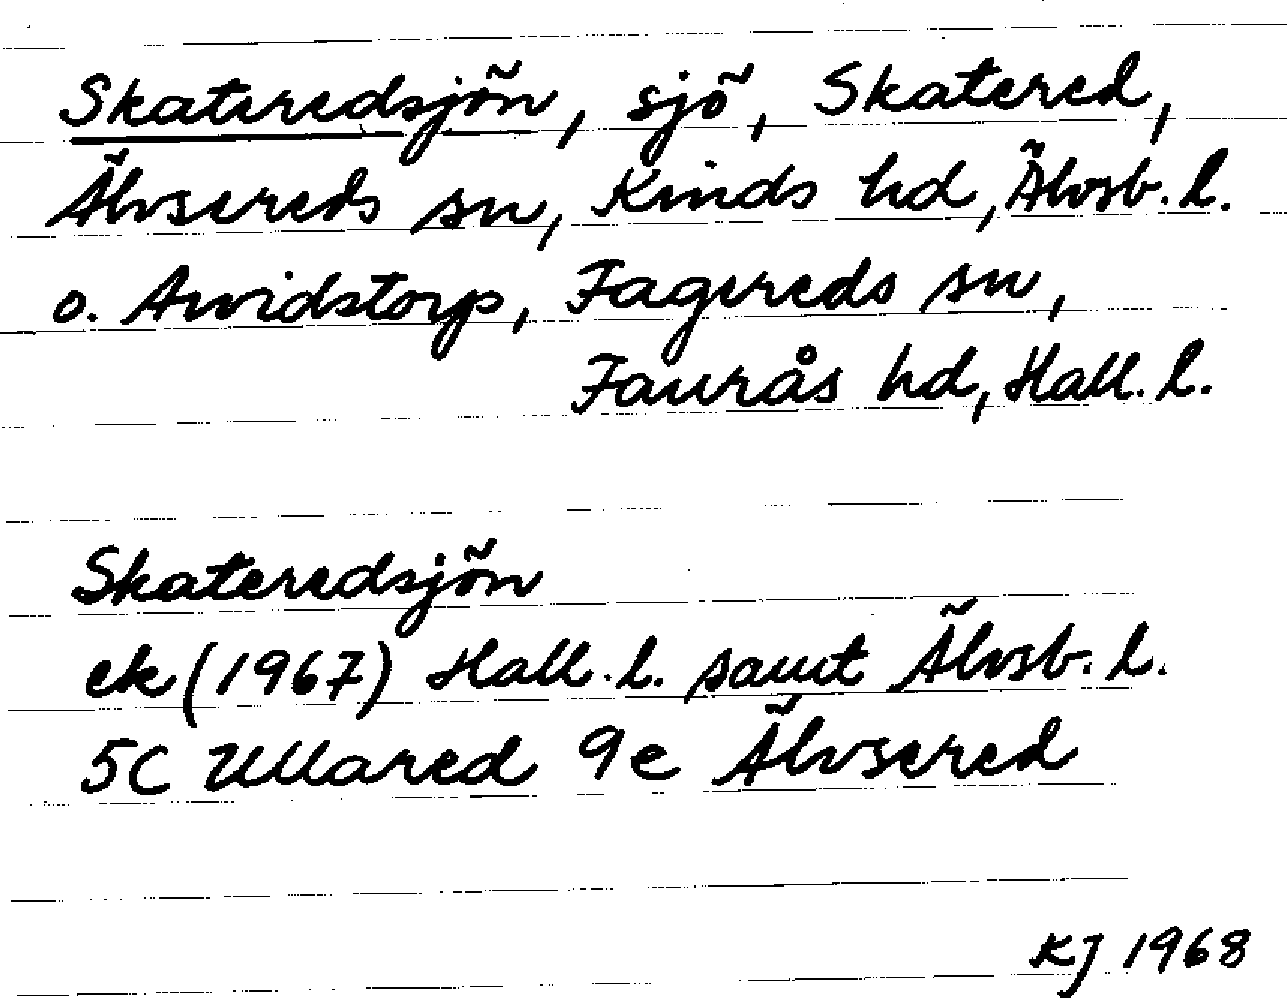 Skateredsjön, sjö, Skatered,
Älvsereds sn, Kinds hd, Älvsb. l.
o. Arvidstorp, Fagereds sn,
Faurås hd, Hall. l.
Skateredsjön
ek (1967) Hall. l. samt Älvsb. l.
5C Ullared 9e Älvsered
KJ 1968